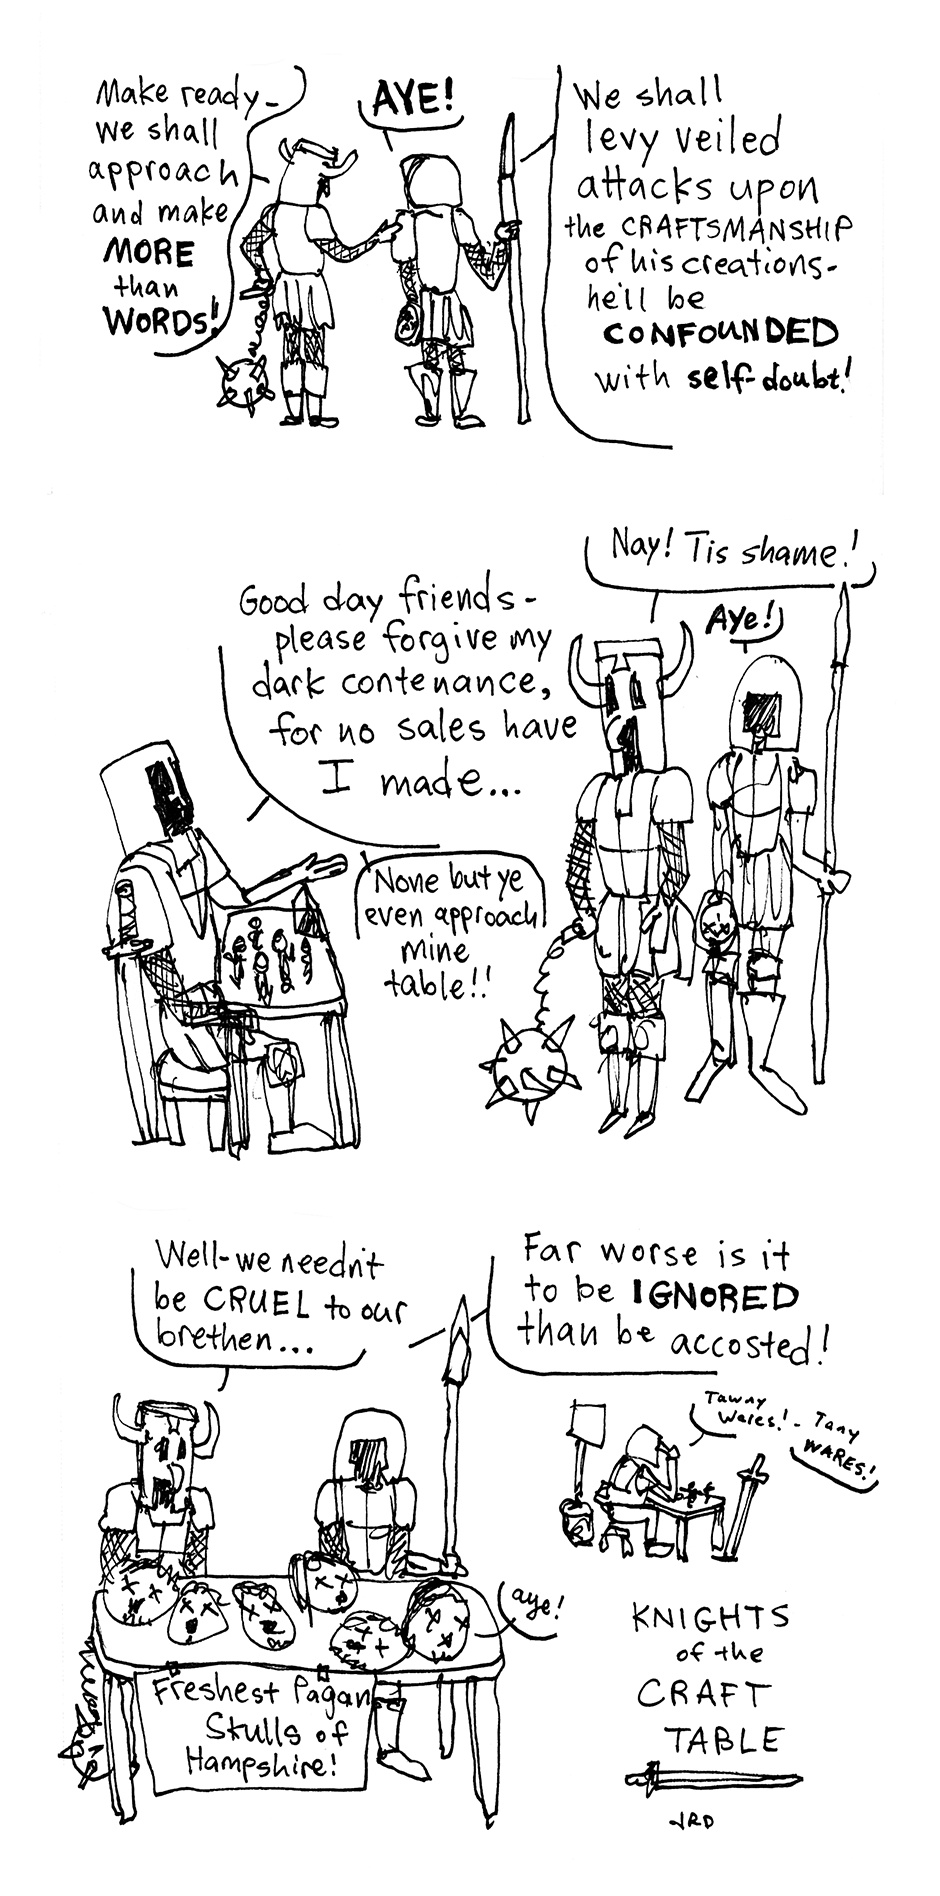 Make ready-
we shall
approach
and make
MORE
than
WORDS!
AYE!
We shall
levy veiled
attacks upon
the CRAFTSMANSHIP
of his creations-
he'll be
CONFOUNDED
with self-doubt!
Good day friends-
please forgive my
dark contenance,
for no sales have
I made...
Nay! Tis shame!
Aye!
None but ye
even approach
mine
table!!
Well-we needn't
be CRUEL to our
brethen...
Far worse is it
to be IGNORED
than be accosted!
Tawny
Wares!- Tany
WARES!
aye!
Freshest Pagan
Skulls of
Hampshire!
KNIGHTS
of the
CRAFT
TABLE
JRD